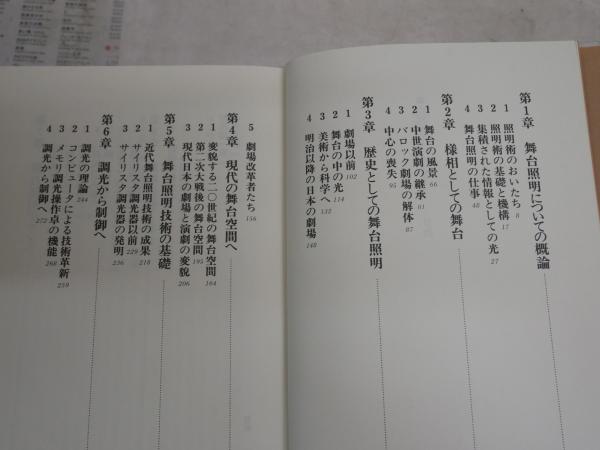 第1章　舞台照明についての概論
1　照明術のおいたち 8
2　照明術の基礎と機構 17
3　集積された情報としての光 27
4　舞台照明の仕事 48
第2章　様相としての舞台
1　舞台の風景 66
2　中世演劇の継承 81
3　バロック劇場の解体 87
4　中心の喪失 95
第3章　歴史としての舞台照明
1　劇場以前 102
2　舞台の中の光 114
3　美術から科学へ 132
4　明治以降の日本の劇場 148
5　劇場改革者たち 156
第4章　現代の舞台空間へ
1　変貌する二〇世紀の舞台空間 164
2　第二次大戦後の舞台空間 195
3　現代日本の劇場と演劇の変貌 206
第5章　舞台照明技術の基礎
1　近代舞台照明技術の成果 218
2　サイリスタ調光器以前 229
3　サイリスタ調光器の発明 236
第6章　調光から制御へ
1　調光の理論 244
2　コンピュータによる技術革新 259
3　メモリ調光操作卓の機能 268
4　調光から制御へ 272